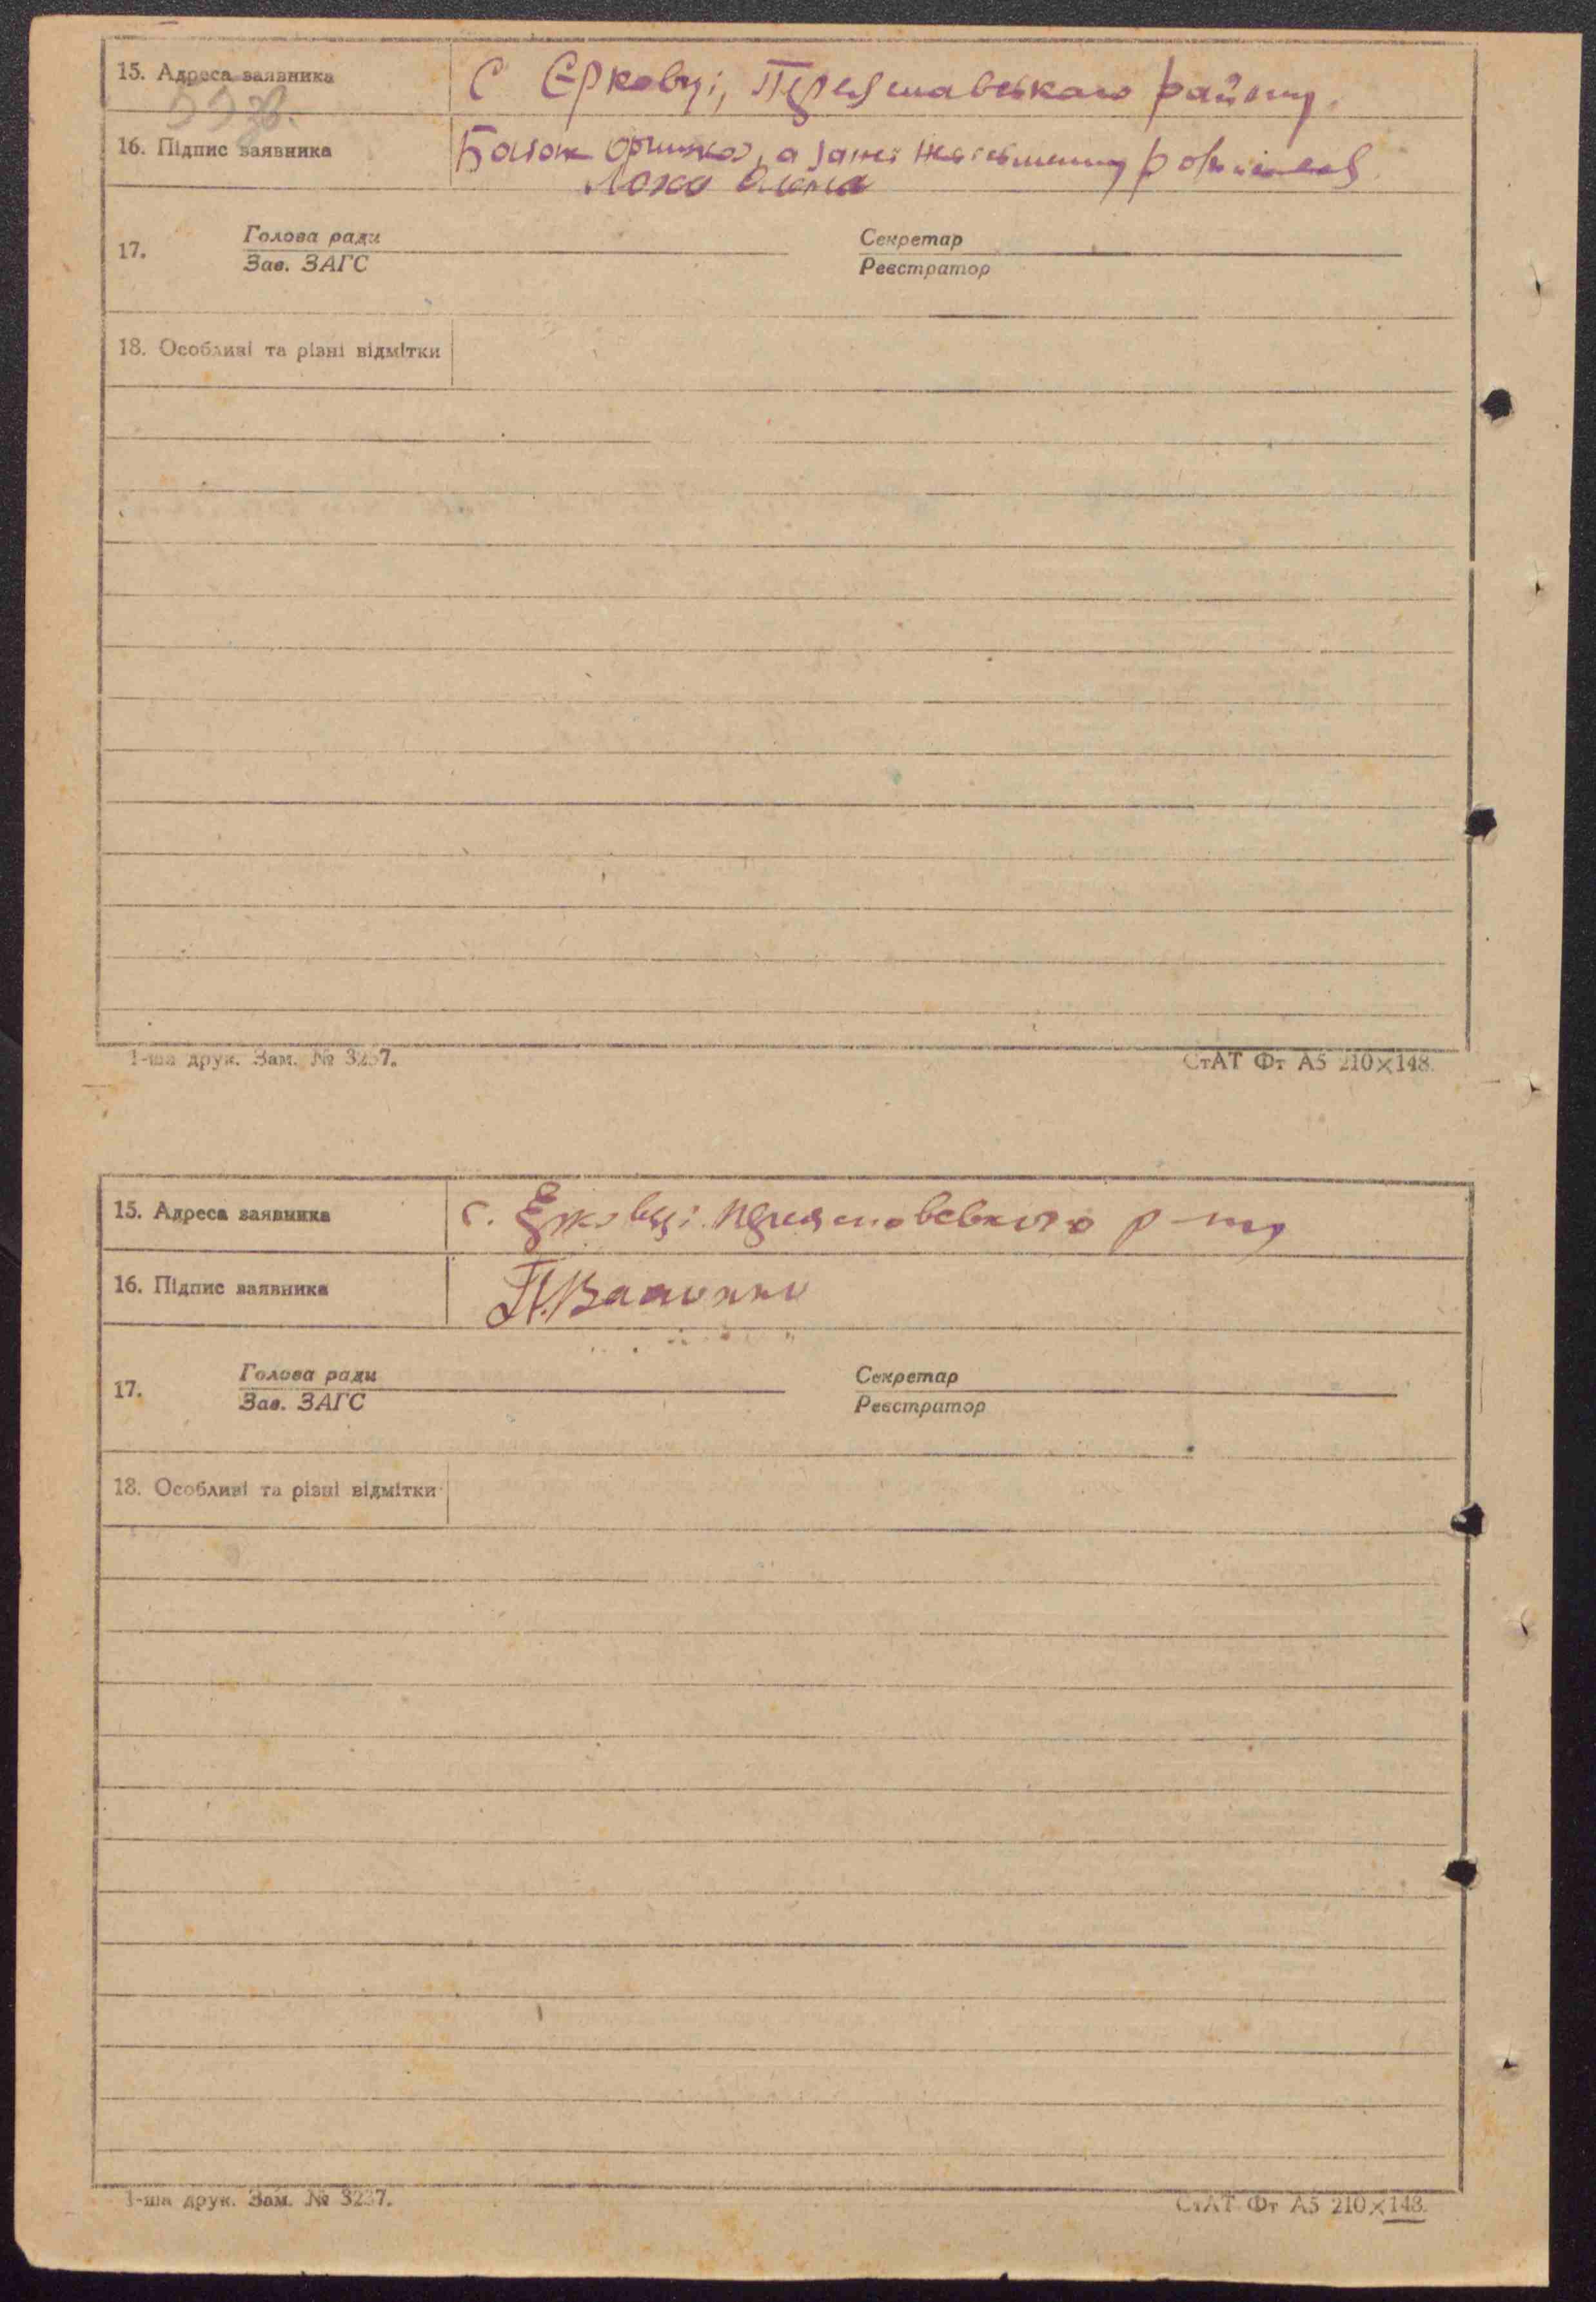 15. Адреса заявника С Єрковці, Переяславського району.
559.
16. Підпис заявника Балок Оришка, а за неї
17. Голова ради Секретар
Зав. ЗАГС Реєстратор
18. Особливі та різні відмітки
1-ша друк. Зам. № 3237. СтАТ Фт А5 210×148.
15. Адреса заявника с. Єрковці Переяславського р-ну
16. Підпис заявника
17. Голова ради Секретар
Зав. ЗАГС Реєстратор
18. Особливі та різні відмітки
1-ша друк. Зам. № 3237. СтАТ Фт А5 210×148.